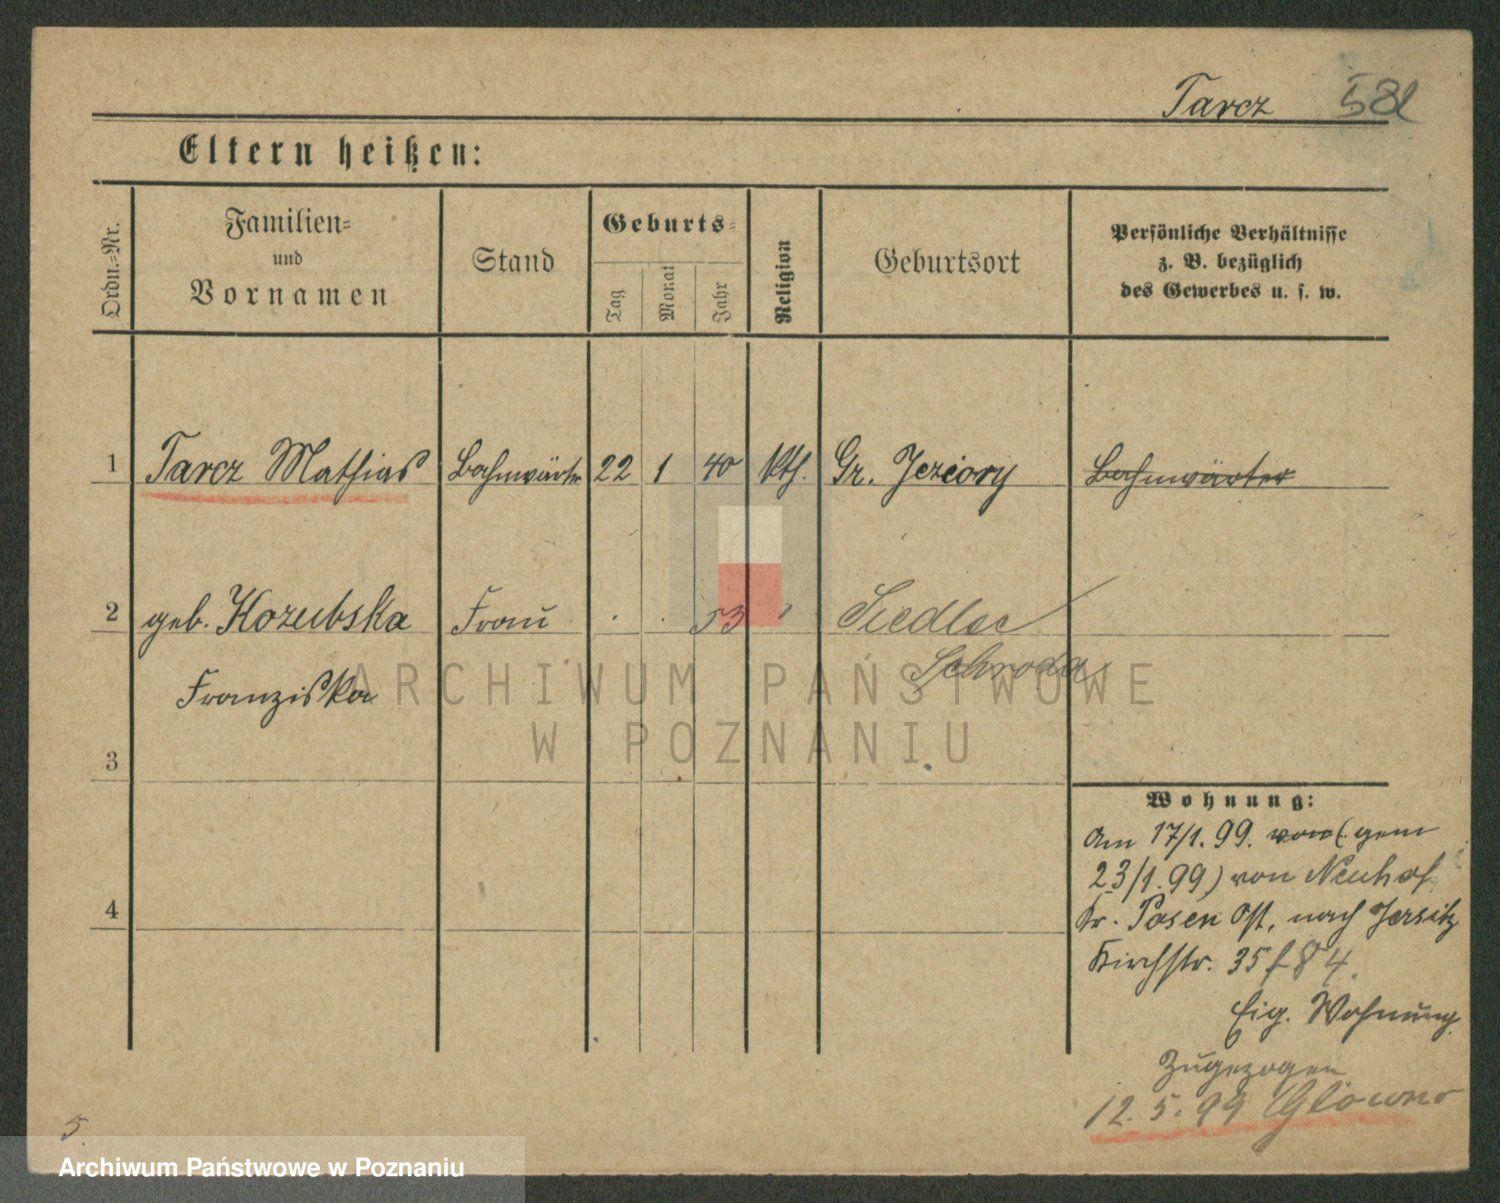 Tarcz 58
Eltern heißen:
Ordn.=Nr.
Familien=
und
Vornamen
Stand
Geburts=
Tag
Monat
Jahr
Religion
Geburtsort
Persönliche Verhältnisse
z. B. bezüglich
des Gewerbes u. s. w.
1 Tarcz Mathias Bahnwärter 22 1 40 kth. Gr. Jeziory Bahnwärter
2 geb. Kozubska Frau 53 Siedlec
Schroda
Franziska
ARCHIWUM PAŃSTWOWE
W POZNANIU
3
Wohnung:
Am 17/1. 99. von (gem
23/1. 99) von Neuhof
Kr. Posen Ost, nach Jersitz
4
Kirchstr. 35
Eig. Wohnung
Zugezogen
12. 5. 99 Glowno
5.
Archiwum Państwowe w Poznaniu